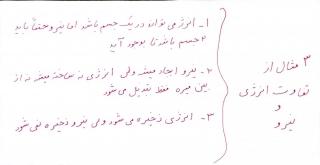 ۳ مثال از
تفاوت انرژی
و
نیرو
۱- انرژی می تواند در یک جسم باشد اما نیرو حتماً باید
۲ جسم باشد تا بوجود آید
۲- نیرو ایجاد میشه ولی انرژی نه ساخته میشه نه از
بین میره فقط تبدیل می شود
۳- انرژی ذخیره می شود ولی نیرو ذخیره نمی شود